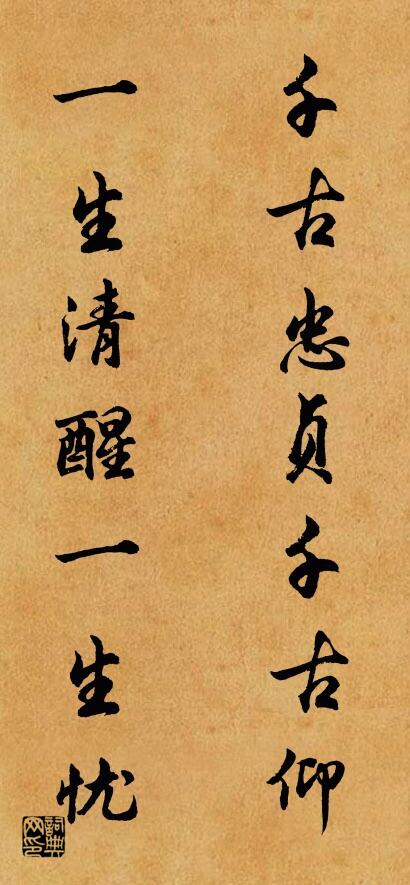 千古忠贞千古仰
一生清醒一生忧
词典网印